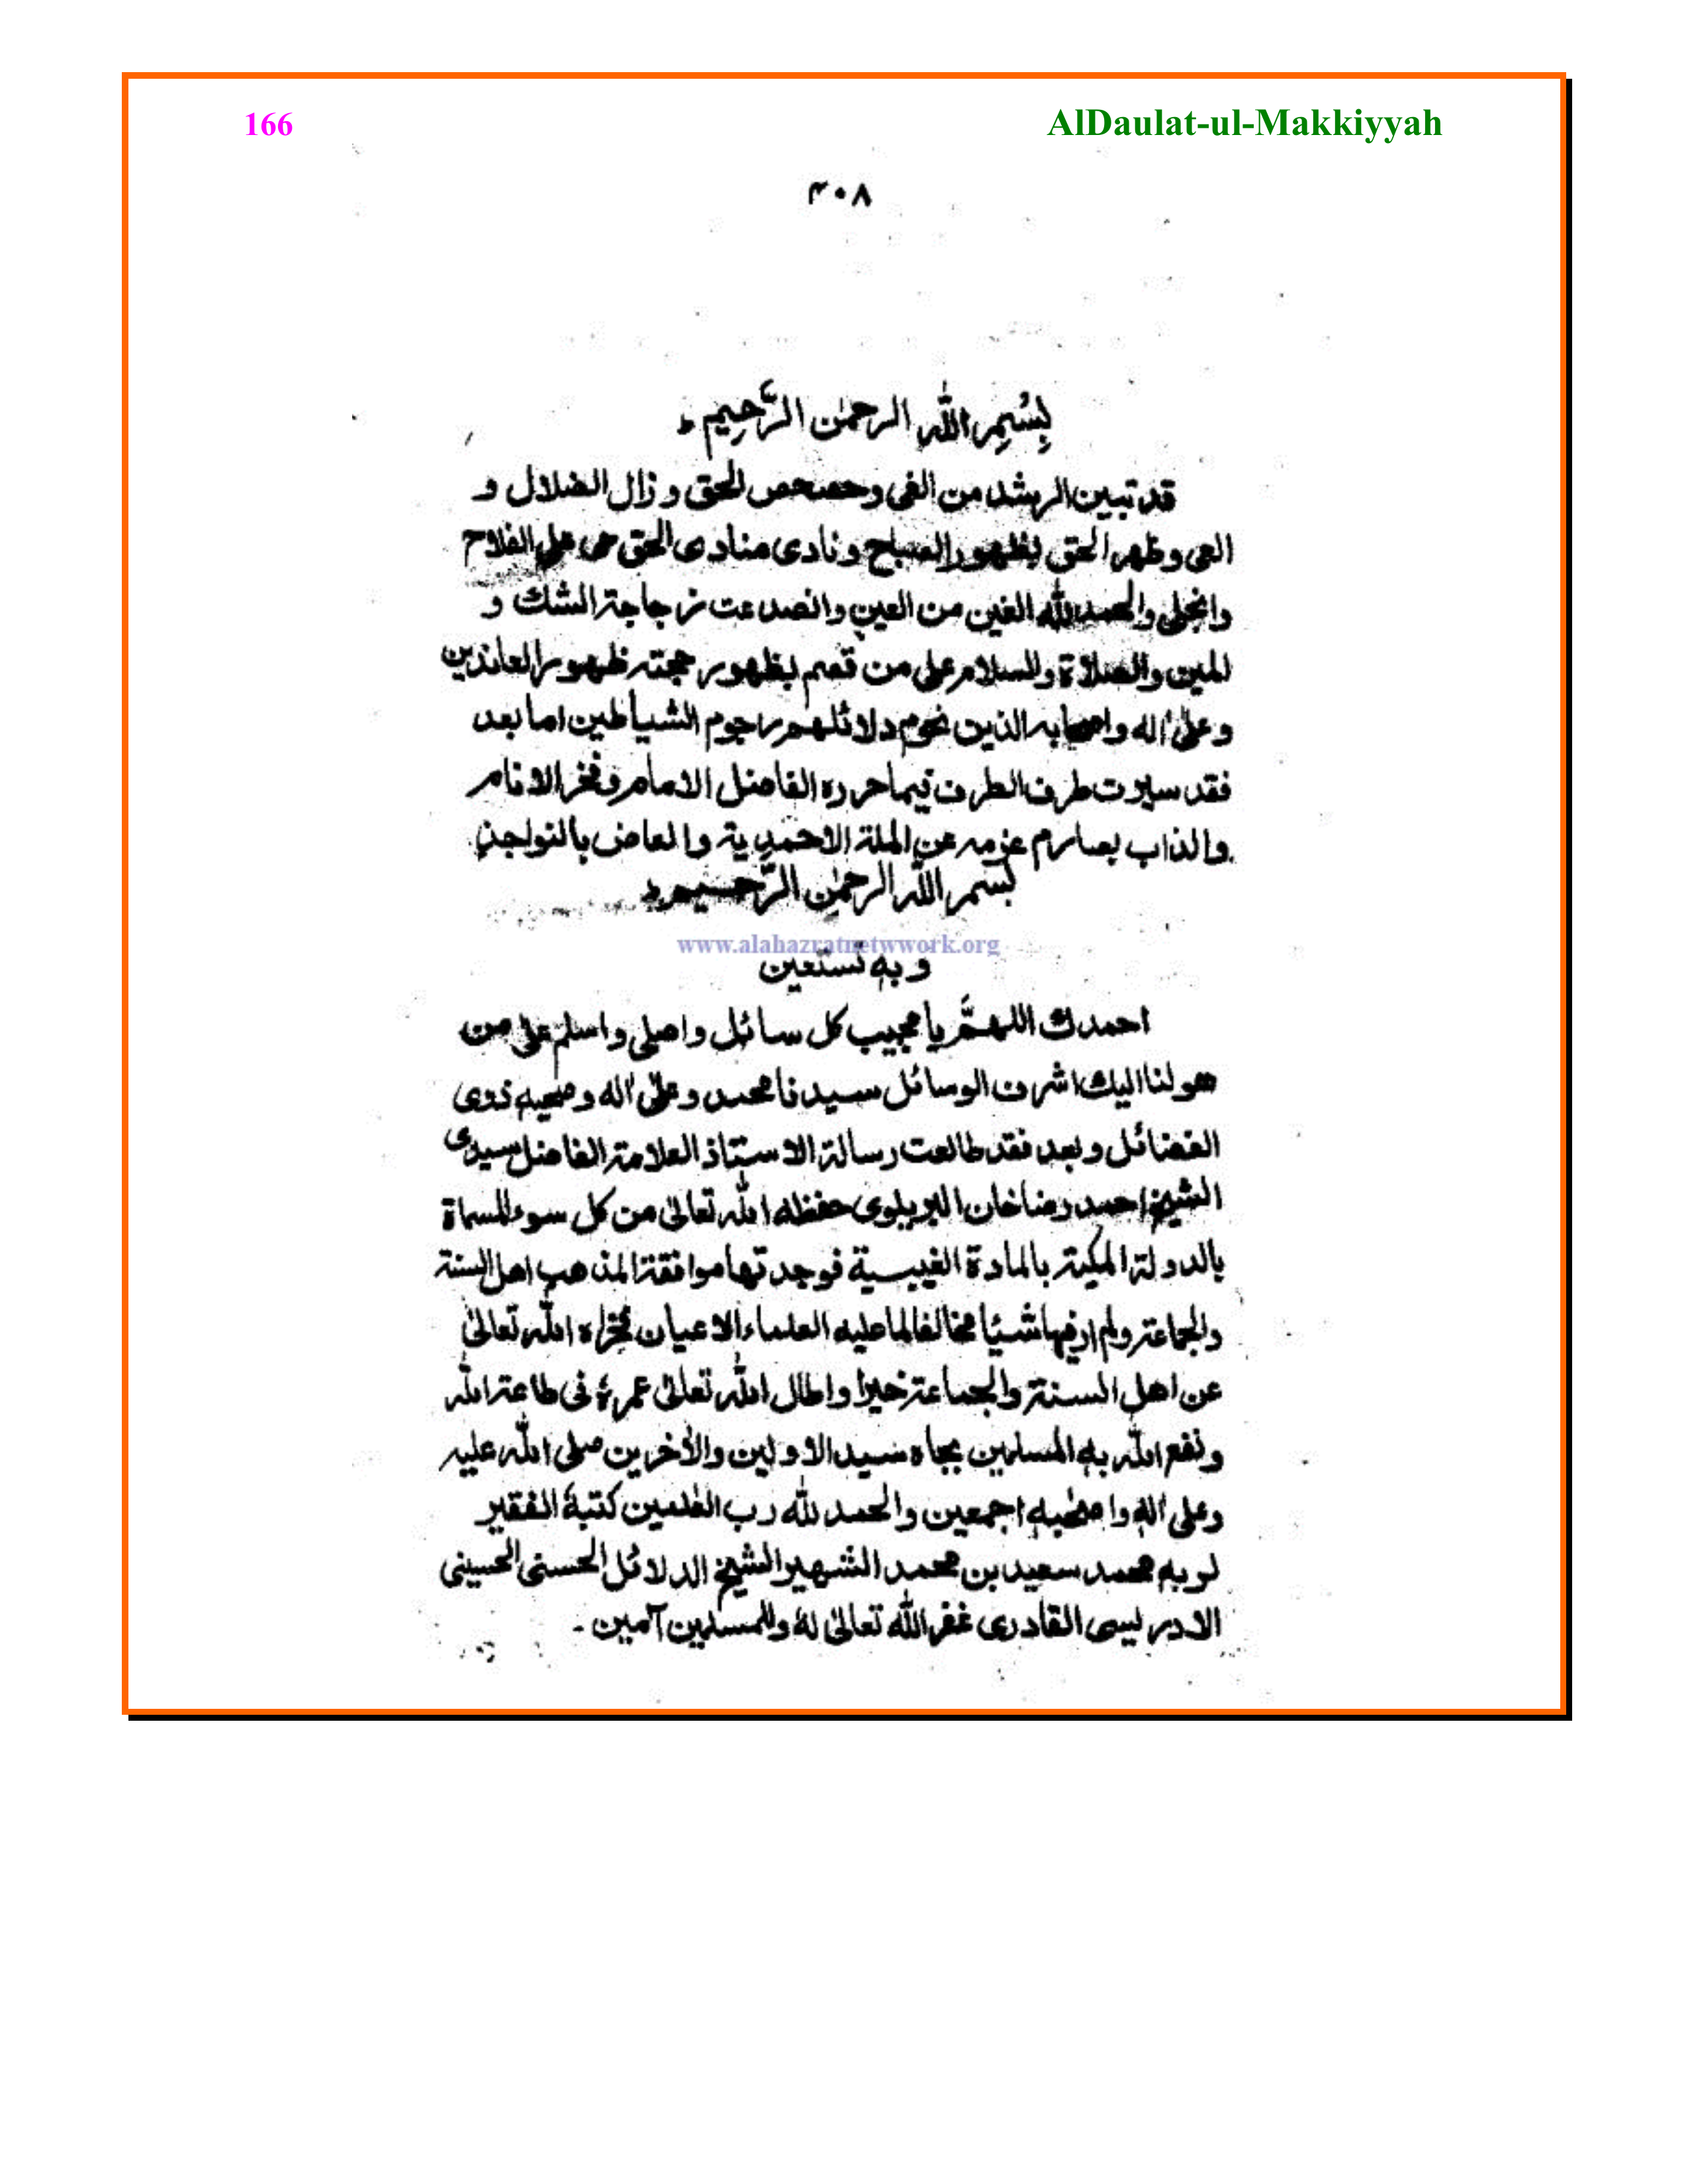 166 AlDaulat-ul-Makkiyyah
۴۰۸
بِسْمِ اللّٰہ الرحمٰن الرَّحِیم ط
قد تبین الرشد من الغی و حصحص الحق و زال الضلال و
العی و ظھر الحق بظھور الصباح و نادی منادی الحق حی علی الفلاح
وانجلی والحمد للہ الغین من العین وانصدعت زجاجۃ الشک و
المین والصلاۃ والسلام علی من قصم بظھور حجتہ ظھور العاندین
وعلیٰ اٰلہ واصحابہ الذین نجوم دلائلھم رجوم الشیاطین اما بعد
فقد سیرت طرف الطرف فیما حررہ الفاضل الامام و فخر الانام
والذاب بصارم عزمہ عن الملۃ الاحمدیۃ والعاض بالنواجذ
بسم اللّٰہ الرحمٰن الرَّحیم ط
www.alahazratnetwwork.org
و بہٖ نستعین
احمدک اللھمَّ یا مجیب کل سائل واصلی واسلم علیٰ من
ھو لنا الیک اشرف الوسائل سیدنا محمد و علیٰ اٰلہ و صحبہٖ ذوی
الفضائل و بعد فقد طالعت رسالۃ الاستاذ العلامۃ الفاضل سیدی
الشیخ احمد رضا خان البریلوی حفظہ اللہ تعالیٰ من کل سوء المسماۃ
بالدولۃ المکیۃ بالمادۃ الغیبیۃ فوجدتھا موافقۃ المذھب اھل السنۃ
والجماعۃ ولم ار فیھا شیئا مخالفا لما علیہ العلماء الاعیان فجزاہ اللہ تعالیٰ
عن اھل السنۃ والجماعۃ خیرا واطال اللہ تعالیٰ عمرہٗ فی طاعۃ اللہ
ونفع اللہ بہٖ المسلمین بجاہ سید الاولین والاٰخرین صلی اللہ علیہ
وعلی اٰلہٖ واصحٰبہٖ اجمعین والحمد للّٰہ رب العٰلمین کتبہٗ الفقیر
لربہٖ محمد سعید بن محمد الشھیر الشیخ الدلائل الحسنی الحسینی
الادریسی القادری غفر اللّٰہ تعالیٰ لہٗ وللمسلمین آمین ۔